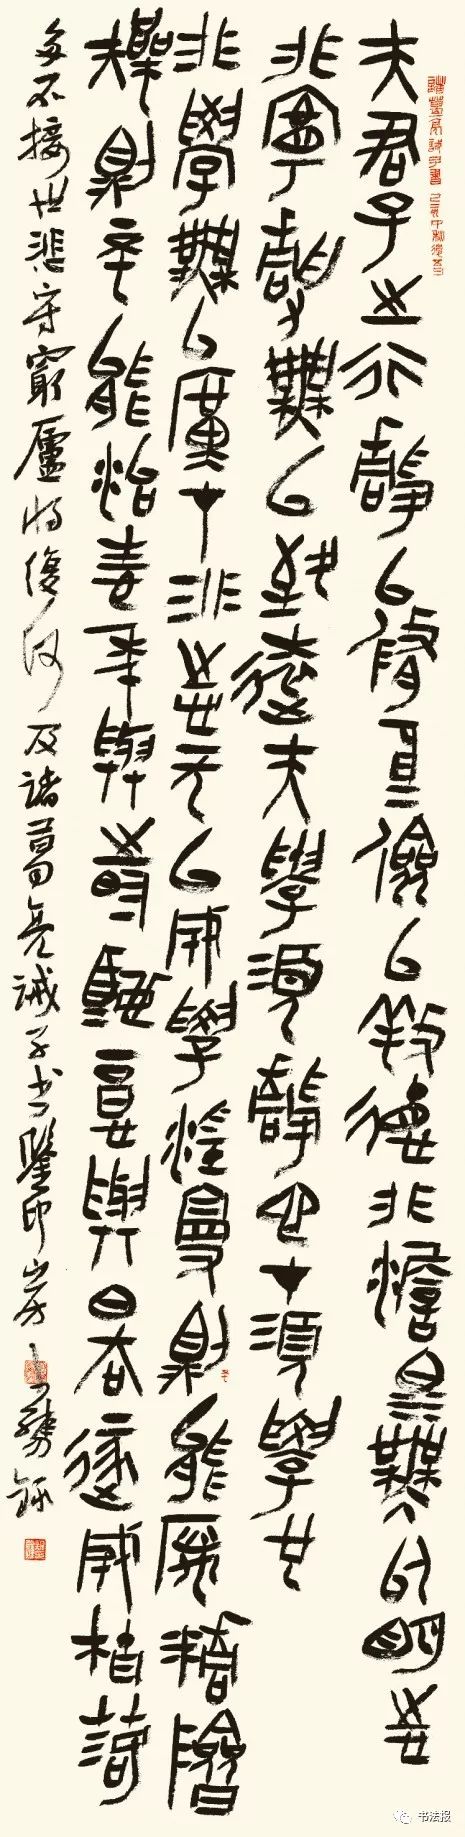 諸葛亮誡子書
夫君子之行靜以脩身儉以養德非憺泊無以明志
非寧靜無以致遠夫學須靜也才須學也
非學無以廣才非志无以成學慆慢則不能厲精險
躁則不能治性年與時馳意與日去遂成枯落
多不接世悲守窮廬將復何及諸葛亮誡子書鑒印山房
书法报